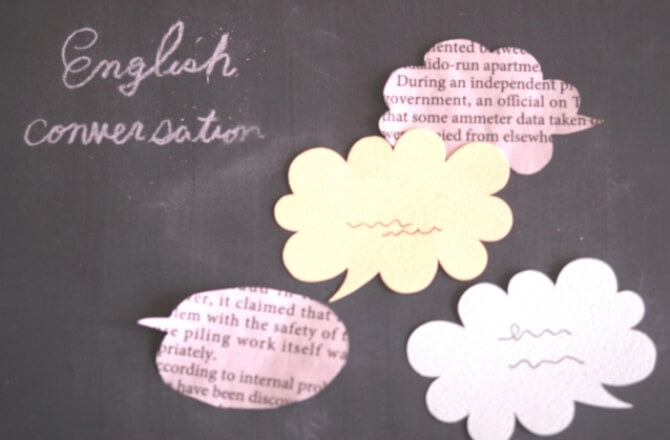 English
conversation
During an independent
government, an official on
that some ammeter data taken
from elsewhe
er, it claimed that
em with the safety of
e piling work itself wa
priately.
ccording to internal pro
have been disco